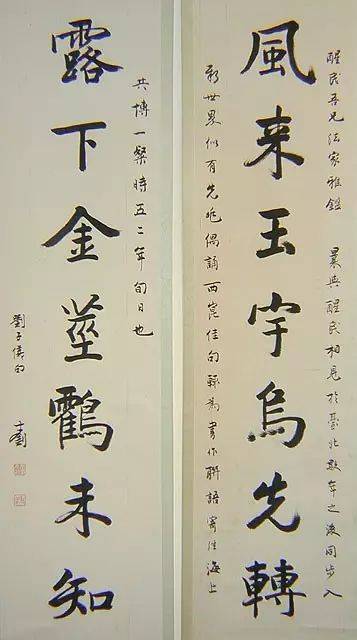 醒民吾兄法家雅鑒 曩與醒民相見於臺北數年之後同步入
風来玉宇烏先轉
新世界似有先兆偶誦西崑佳句輒為書作聯語寄往海上
共博一粲時五二年旬日也
露下金莖鸖未知
劉子